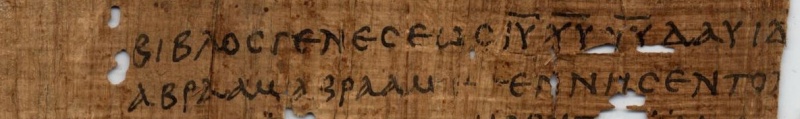 ΒΙΒΛΟΣ ΓΕΝΕΣΕΩΣ ΙΥ ΧΥ ΥΥ ΔΑΥΙΔ
ΑΒΡΑΑΜ ΑΒΡΑΑΜ ΕΓΕΝΝΗΣΕΝ ΤΟ